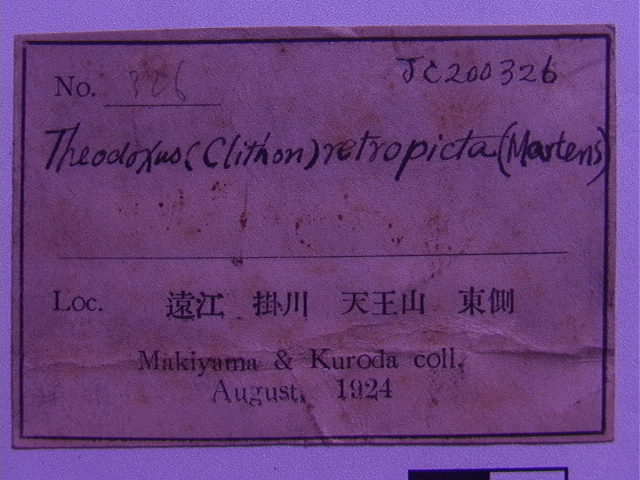 No. 326 JC200326
Theodoxus (Clithon) retropicta (Martens)
Loc. 遠江 掛川 天王山 東側
Makiyama & Kuroda coll.
August, 1924